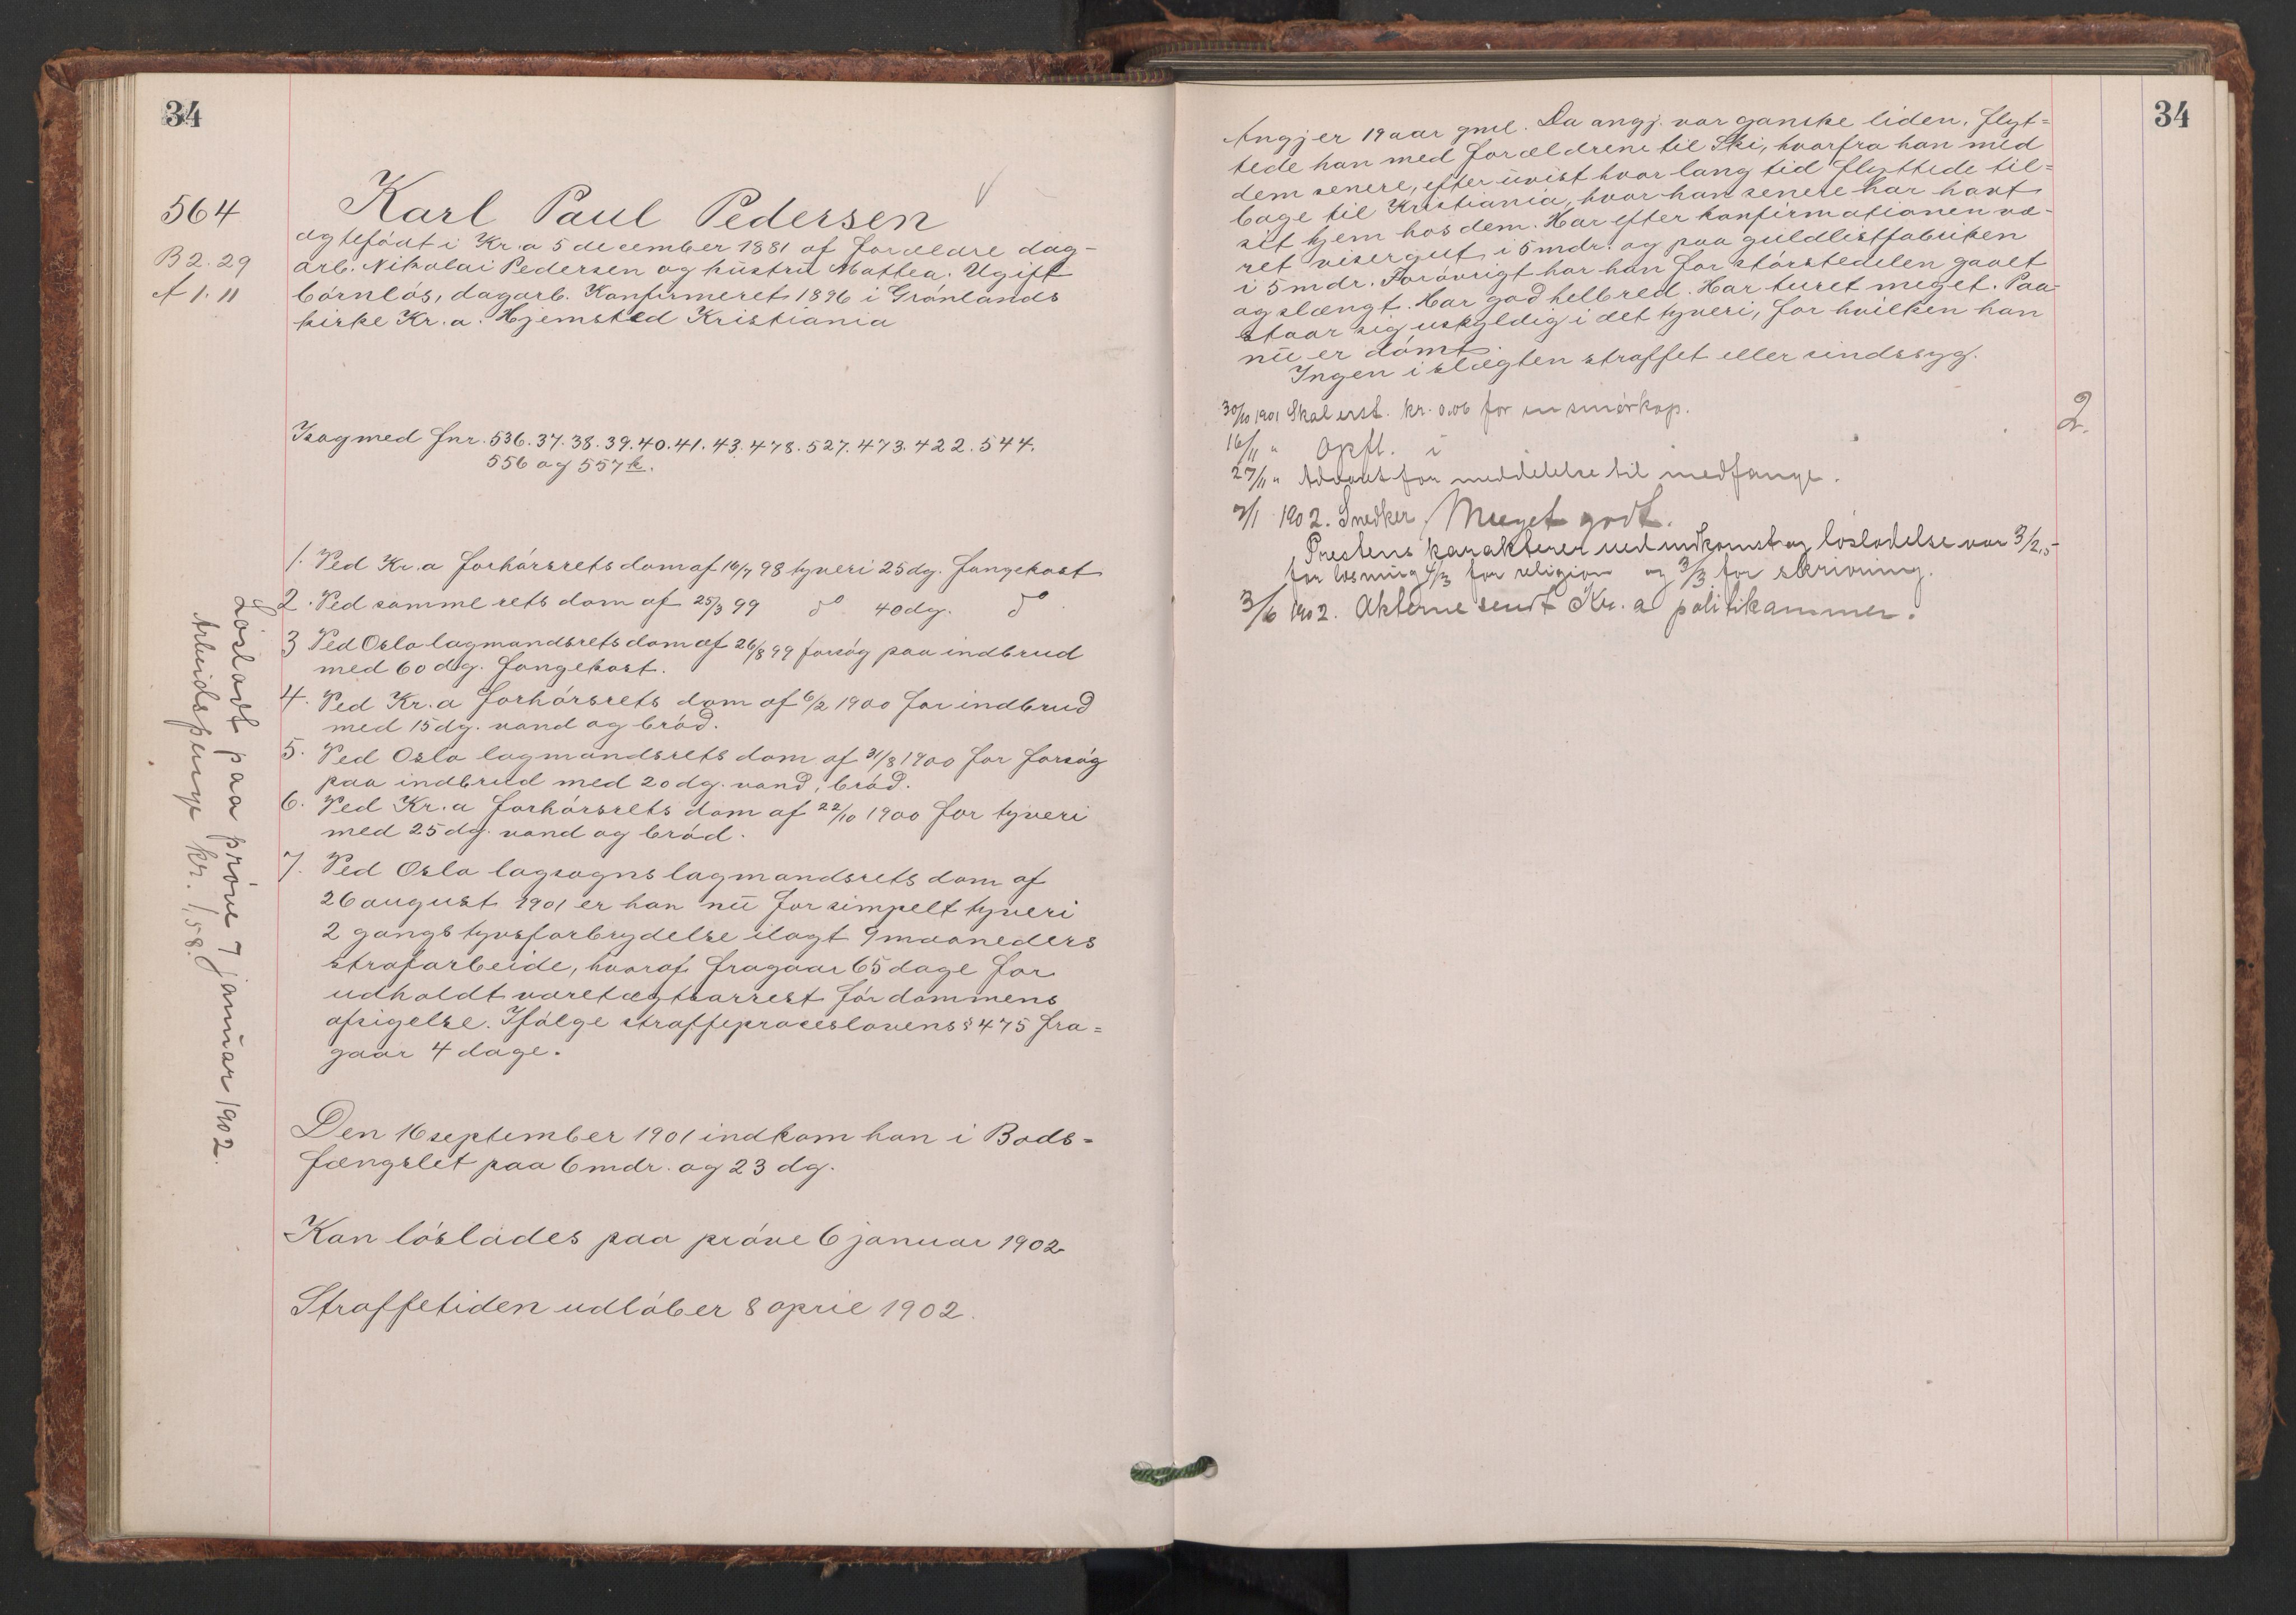 34
564
B 2. 29
A 1. 11
Karl Paul Pedersen
ægtefödt i Kr.a 5 december 1881 af forældre dag-
arb. Nikolai Pedersen og hustru Mathea. Ugift
börnlös, dagarb. Konfirmeret 1896 i Grönlands
kirke Kr.a. Hjemsted Kristiania
I sag med fnr. 536. 37. 38. 39. 40. 41. 43. 478. 527. 473. 422. 544.
556 og 557 k.
1. Ved Kr.a forhörsrets dom af 16/7 98 tyveri 25 dg. fangekost
2. Ved samme rets dom af 25/3 99 do 40 dg. do
3 Ved Oslo lagmandsrets dom af 26/8 99 forsög paa indbrud
med 60 dg. fangekost.
4. Ved Kr.a forhörsrets dom af 6/2 1900 for indbrud
med 15 dg. vand og bröd.
5. Ved Oslo lagmandsrets dom af 31/8 1900 for forsög
paa indbrud med 20 dg. vand, bröd.
6. Ved Kr.a forhörsrets dom af 22/10 1900 for tyveri
med 25 dg. vand og bröd.
7. Ved Oslo lagsogns lagmandsrets dom af
26 august 1901 er han nu for simpelt tyveri
2 gangs tyvsforbrydelse ilagt 9 maaneders
strafarbeide, hvoraf fragaar 65 dage for
udholdt varetægtsarrest för dommens
afsigelse. Ifölge straffeproceslovens § 475 fra=
gaar 4 dage.
Den 16 september 1901 indkom han i Bods=
fængslet paa 6 mdr. og 23 dg.
Kan löslades paa pröve 6 januar 1902
Straffetiden udlöber 8 april 1902.
Lösladt paa pröve 7 januar 1902.
Arbeidspenge kr. 1,58.
34
Angj er 19 aar gml. Da angj. var ganske liden, flyt=
tede han med forældrene til Ski, hvorfra han med
dem senere, efter uvist hvor lang tid flyttede til=
bage til Kristiania, hvor han senere har havt
sit hjem hos dem. Har efter konfirmationen væ-
ret visergut i 5 mdr. og paa guldlistfabriken
i 5 mdr. Forövrigt har han for störstedelen gaaet
og slængt. Har god helbred. Har turet meget. Paa-
staar sig uskyldig i det tyveri, for hvilken han
nu er dömt.
Ingen i slægten straffet eller sindssyg.
30/10 1901 Skal erst. kr. 0.06 for en smörkop.
16/11 " Opfl. i 2.
27/11 " Advaret for meddelelse til medfange.
7/1 1902. Snedker. Meget godt.
Prestens karakterer ved indkomst og löslodelse var 3/2,5
for læsning 4/3 for religion og 3/3 for skrivning.
3/6 1902. Akterne sendt Kr.a politikammer.